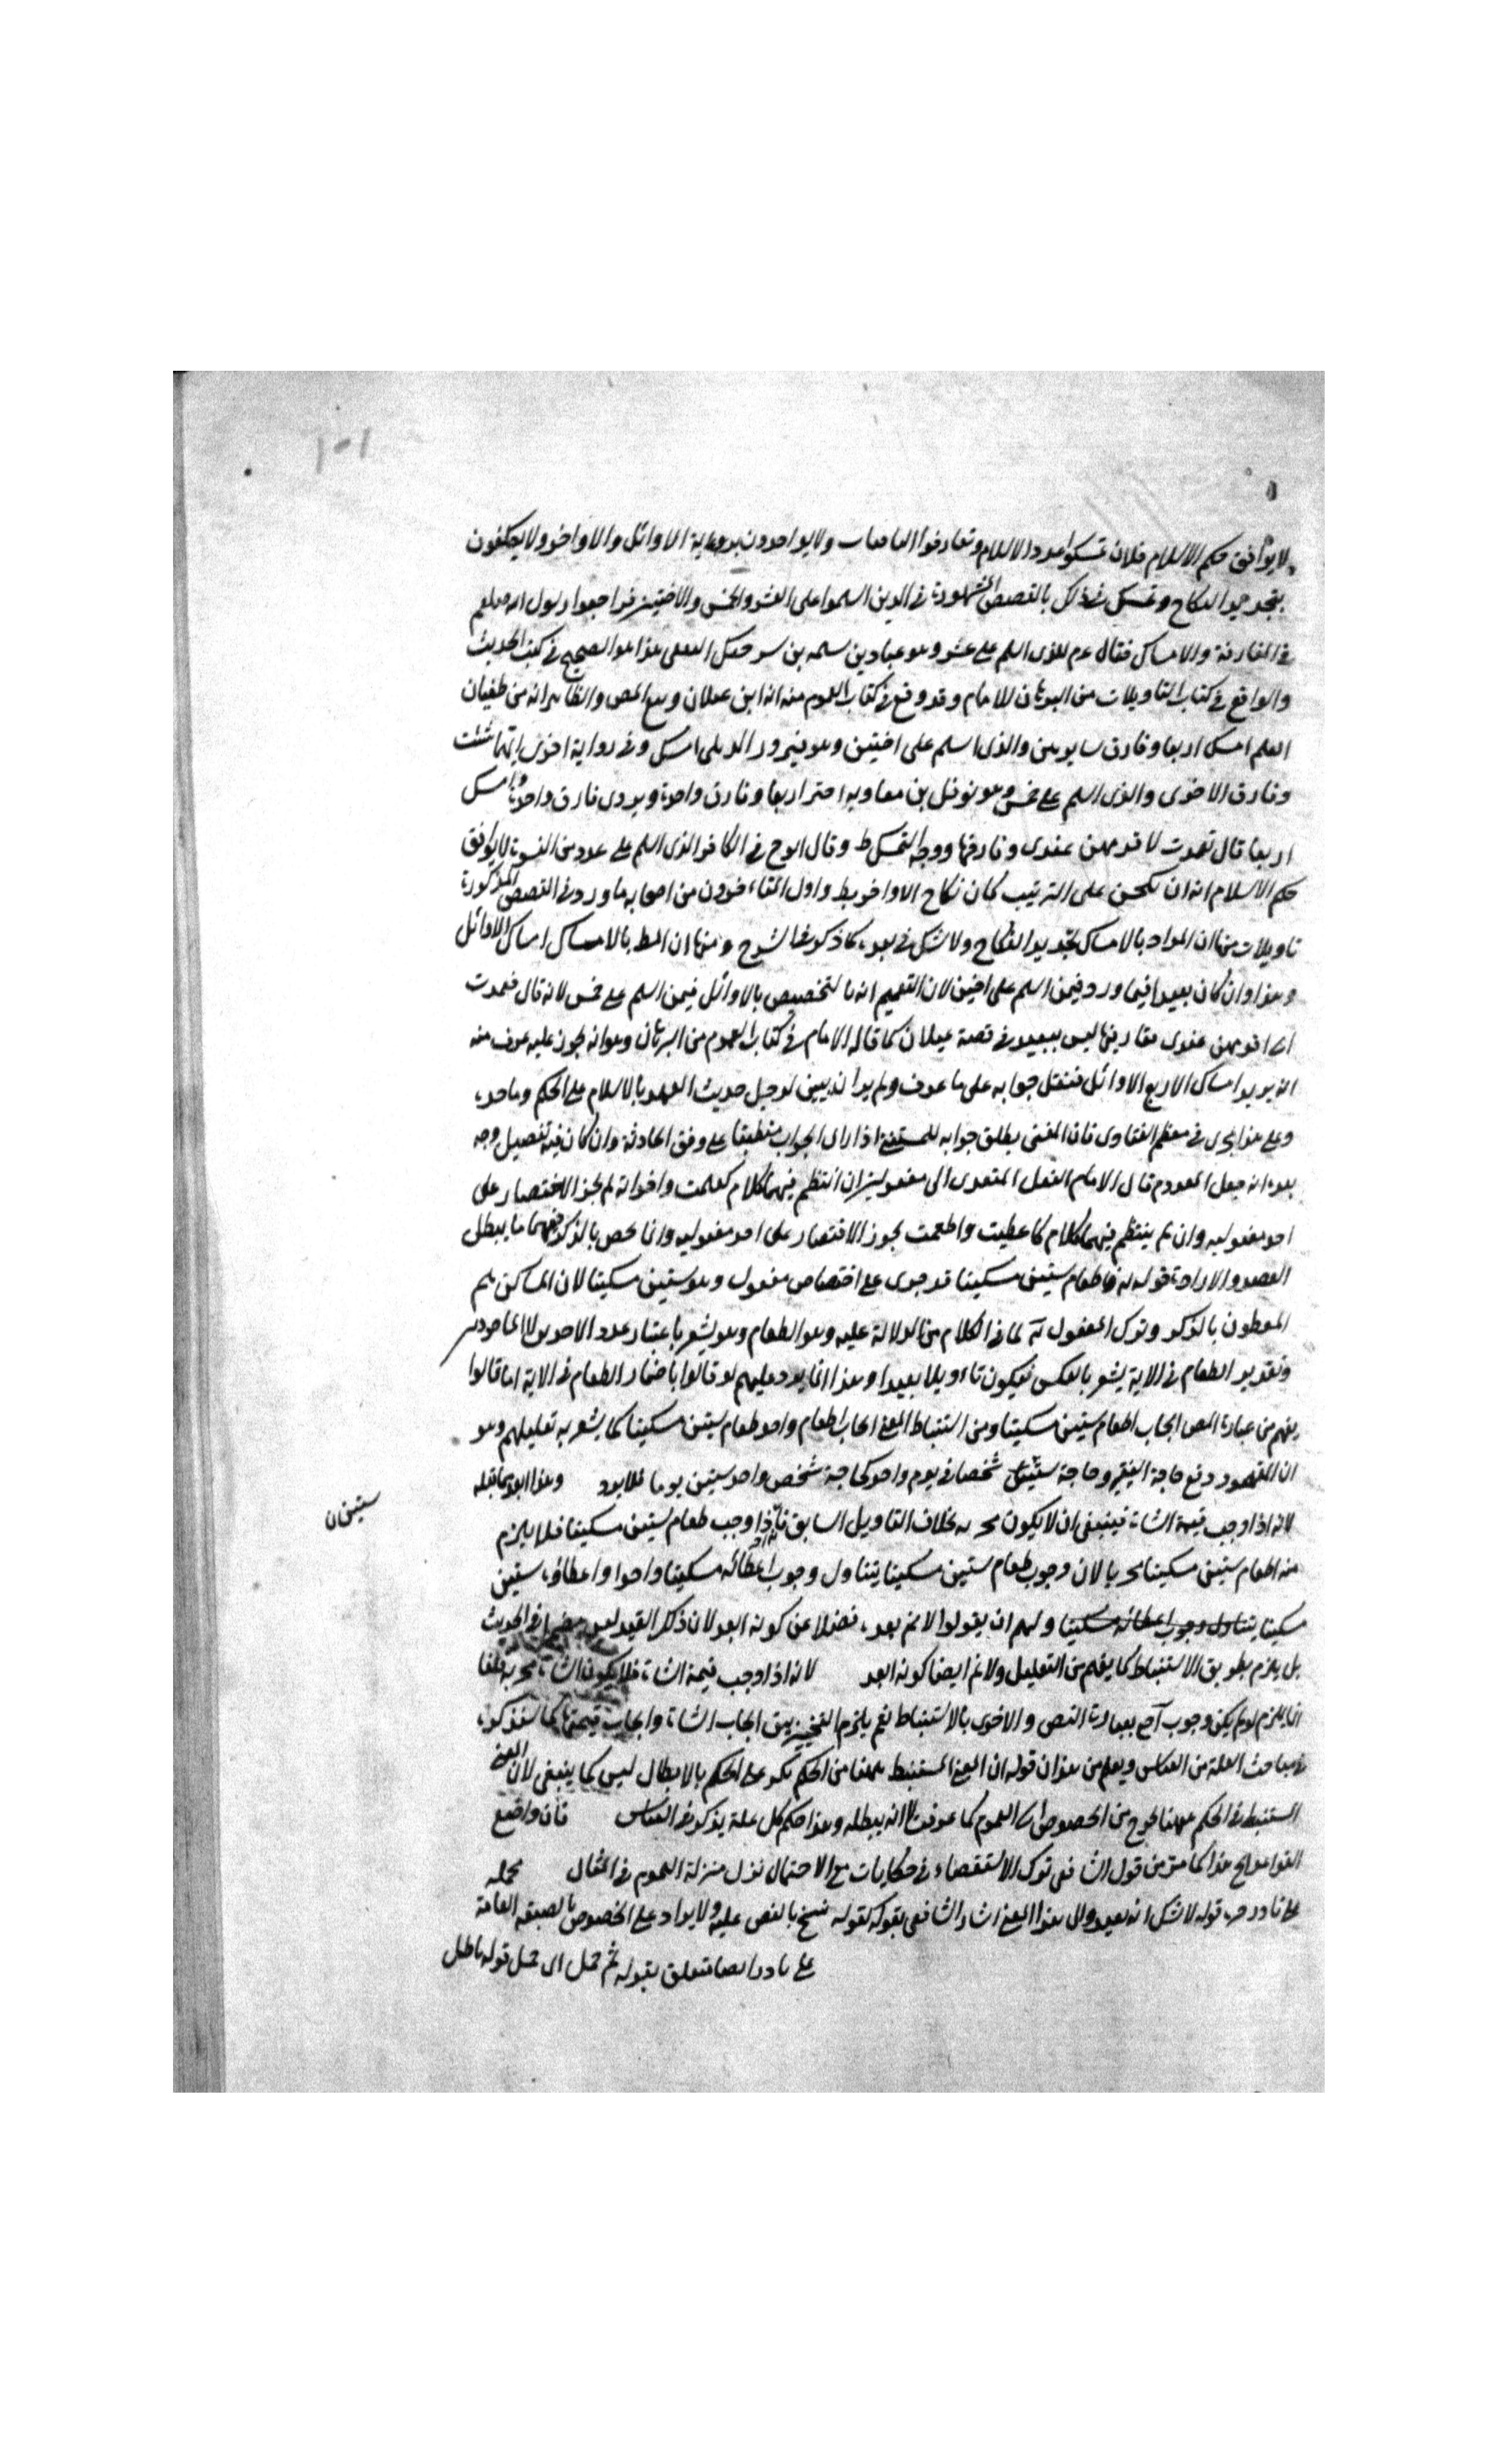 ١٠١
لا يوافق حكم الاسلام فلان تمسكوا بعدد الاسلام وتفارقوا الباقيات ولا يواخذون برعاية الاوائل والاواخر ولا يكلفون
بتجديد النكاح وتمسك في ذلك بالقصص المشهورة في الدين اسلموا على العشر والخمس والاختين فراجعوا رسول الله صلعم
في المفارقة والامساك فقال عم للذى اسلم على عشر وهو غيلان بن سلمه بن هذا هو الصحيح في كتب الحديث
والواقع في كتاب التاويلات من البرهان للامام وقد وقع في كتاب العموم منه انه ابن غيلان وتبع المص والظاهر انه من طغيان
القلم امسك اربعا وفارق سايرهن والذى اسلم على اختين وهو فيروز الديلمى امسك وفي رواية اخرى ايتهما شئت
وفارق الاخرى والذى اسلم على خمس وهو نوفل بن معاويه اختر اربعا وفارق واحدة ويروى فارق واحدة وامسك
اربعا قال فعمدت لاقدمهن عندى وفارقتها ووجه التمسك ظ وقال ابو ح في الكافر الذى اسلم على عدد من النسوة لا يوافق
حكم الاسلام انه ان نكحهن على الترتيب كان نكاح الاواخر بط واول المتاخرون من اصحابه ما ورد في القصص المذكورة
تاويلات منها ان المراد بالامساك تجديد النكاح ولا شك في بعده كما ذكر في الشرح ومنها ان المط بالامساك امساك الاوائل
وهذا وان كان بعيدا فيما ورد فيمن اسلم على اختين لان التعميم انه بالتخصيص بالاوائل فيمن اسلم على خمس لانه قال فعمدت
الى اقدمهن عندى ففارقتها ليس ببعيد في قصة غيلان كما قاله الامام في كتاب العموم من البرهان وهو انه يجوز عليه عرف منه
انه يريد امساك الاربع الاوائل فنقل جوابه على ما عرف ولم ير ان يبين لرجل حديث العهد بالاسلام على الحكم وماخذه
وعلى هذا يجرى في معظم الفتاوى فان المفتى يطلق جوابه للمستفتى اذا راى الجواب منطبقا على وفق الحادثة وان كان فيه تفصيل وجه
بعده انه جعل المعدوم قال الامام الفعل المتعدى الى مفعولين ان انتظم فيهما كلام كعلمت واخواته لم يجز الاقتصار على
احد مفعوليه وان لم ينتظم فيهما كلام كاعطيت واطعمت يجوز الاقتصار على احد مفعوليه وانما يخص بالذكر فيهما ما يبطل
القصد والارادة قوله تع فاطعام ستين مسكينا قد جرى على اختصاص مفعول وهو ستين مسكينا لان المساكين هم
المعطون بالذكر وترك المفعول لما في الكلام من الدلالة عليه وهو الطعام وهو يشعر باعتبار عدد الاخذين لا الماخوذ
وتقدير الطعام في الاية يشعر بالعكس فيكون تاويلا بعيدا وهذا انما يرد عليهم لو قالوا باضمار الطعام في الاية اما قالوا
يفهم من عبارة النص ايجاب اطعام ستين مسكينا ومن استنباط المعنى ايجاب اطعام واحد طعام ستين مسكينا كما يشعر به تعليلهم وهو
ان المقصود دفع حاجة الفقير وحاجة ستين شخصا في يوم واحد كحاجة شخص واحد ستين يوما فلا يرد وهذا ابعد مما قبله
ستين ن
لانه اذا وجب قيمة الشاة فينبغى ان لا يكون مجزيه بخلاف التاويل السابق فانه اذا وجب طعام ستين مسكينا فلا يلزم
منه اطعام ستين مسكينا مجزيا لان وجوب طعام ستين مسكينا يتناول وجوب اعطائه مسكينا واحدا واعطاؤه ستين
مسكينا يتناول وجوب اعطائه مسكينا ولهم ان يقولوا لا نم بعده فضلا عن كونه ابعد لان ذكر القيد ليس في الحديث
بل يلزم بطريق الاستنباط كما يفهم من التعليل ولا نم ايضا كونه ابعد لانه اذا وجب قيمة الشاة فلا يكون الشاة مجزية قلنا
انما يلزم لو لم يكن وجوب بعبارة النص والاخرى بالاستنباط نعم يلزم التخيير بين ايجاب الشاة وايجاب قيمتها كما سنذكره
في مباحث العلة من القياس ويعلم من هذا ان قوله ان المعنى المستنبط ههنا من الحكم يكر على الحكم بالابطال ليس كما ينبغى لان المعنى
المستنبط في الحكم ههنا يخرج من الخصوص الى العموم كما عرفت لا انه يبطله وهذا حكم كل علة يذكر في القياس فان واضع
القواعد الخ هذا كما مر من قول الشافعى ترك الاستقصاء في حكايات مع الاحتمال نزل منزلة العموم في المثال محمله
على نادر حرب قوله لا شك انه بعيد والى هذا المعنى اشار الشافعى بقوله لقوله شيخ بالنص عليه ولا يراد على الخصوص بالصيغه العامة
على نادر ايضا متعلق بقوله ثم حمل اى حمل قوله باطل